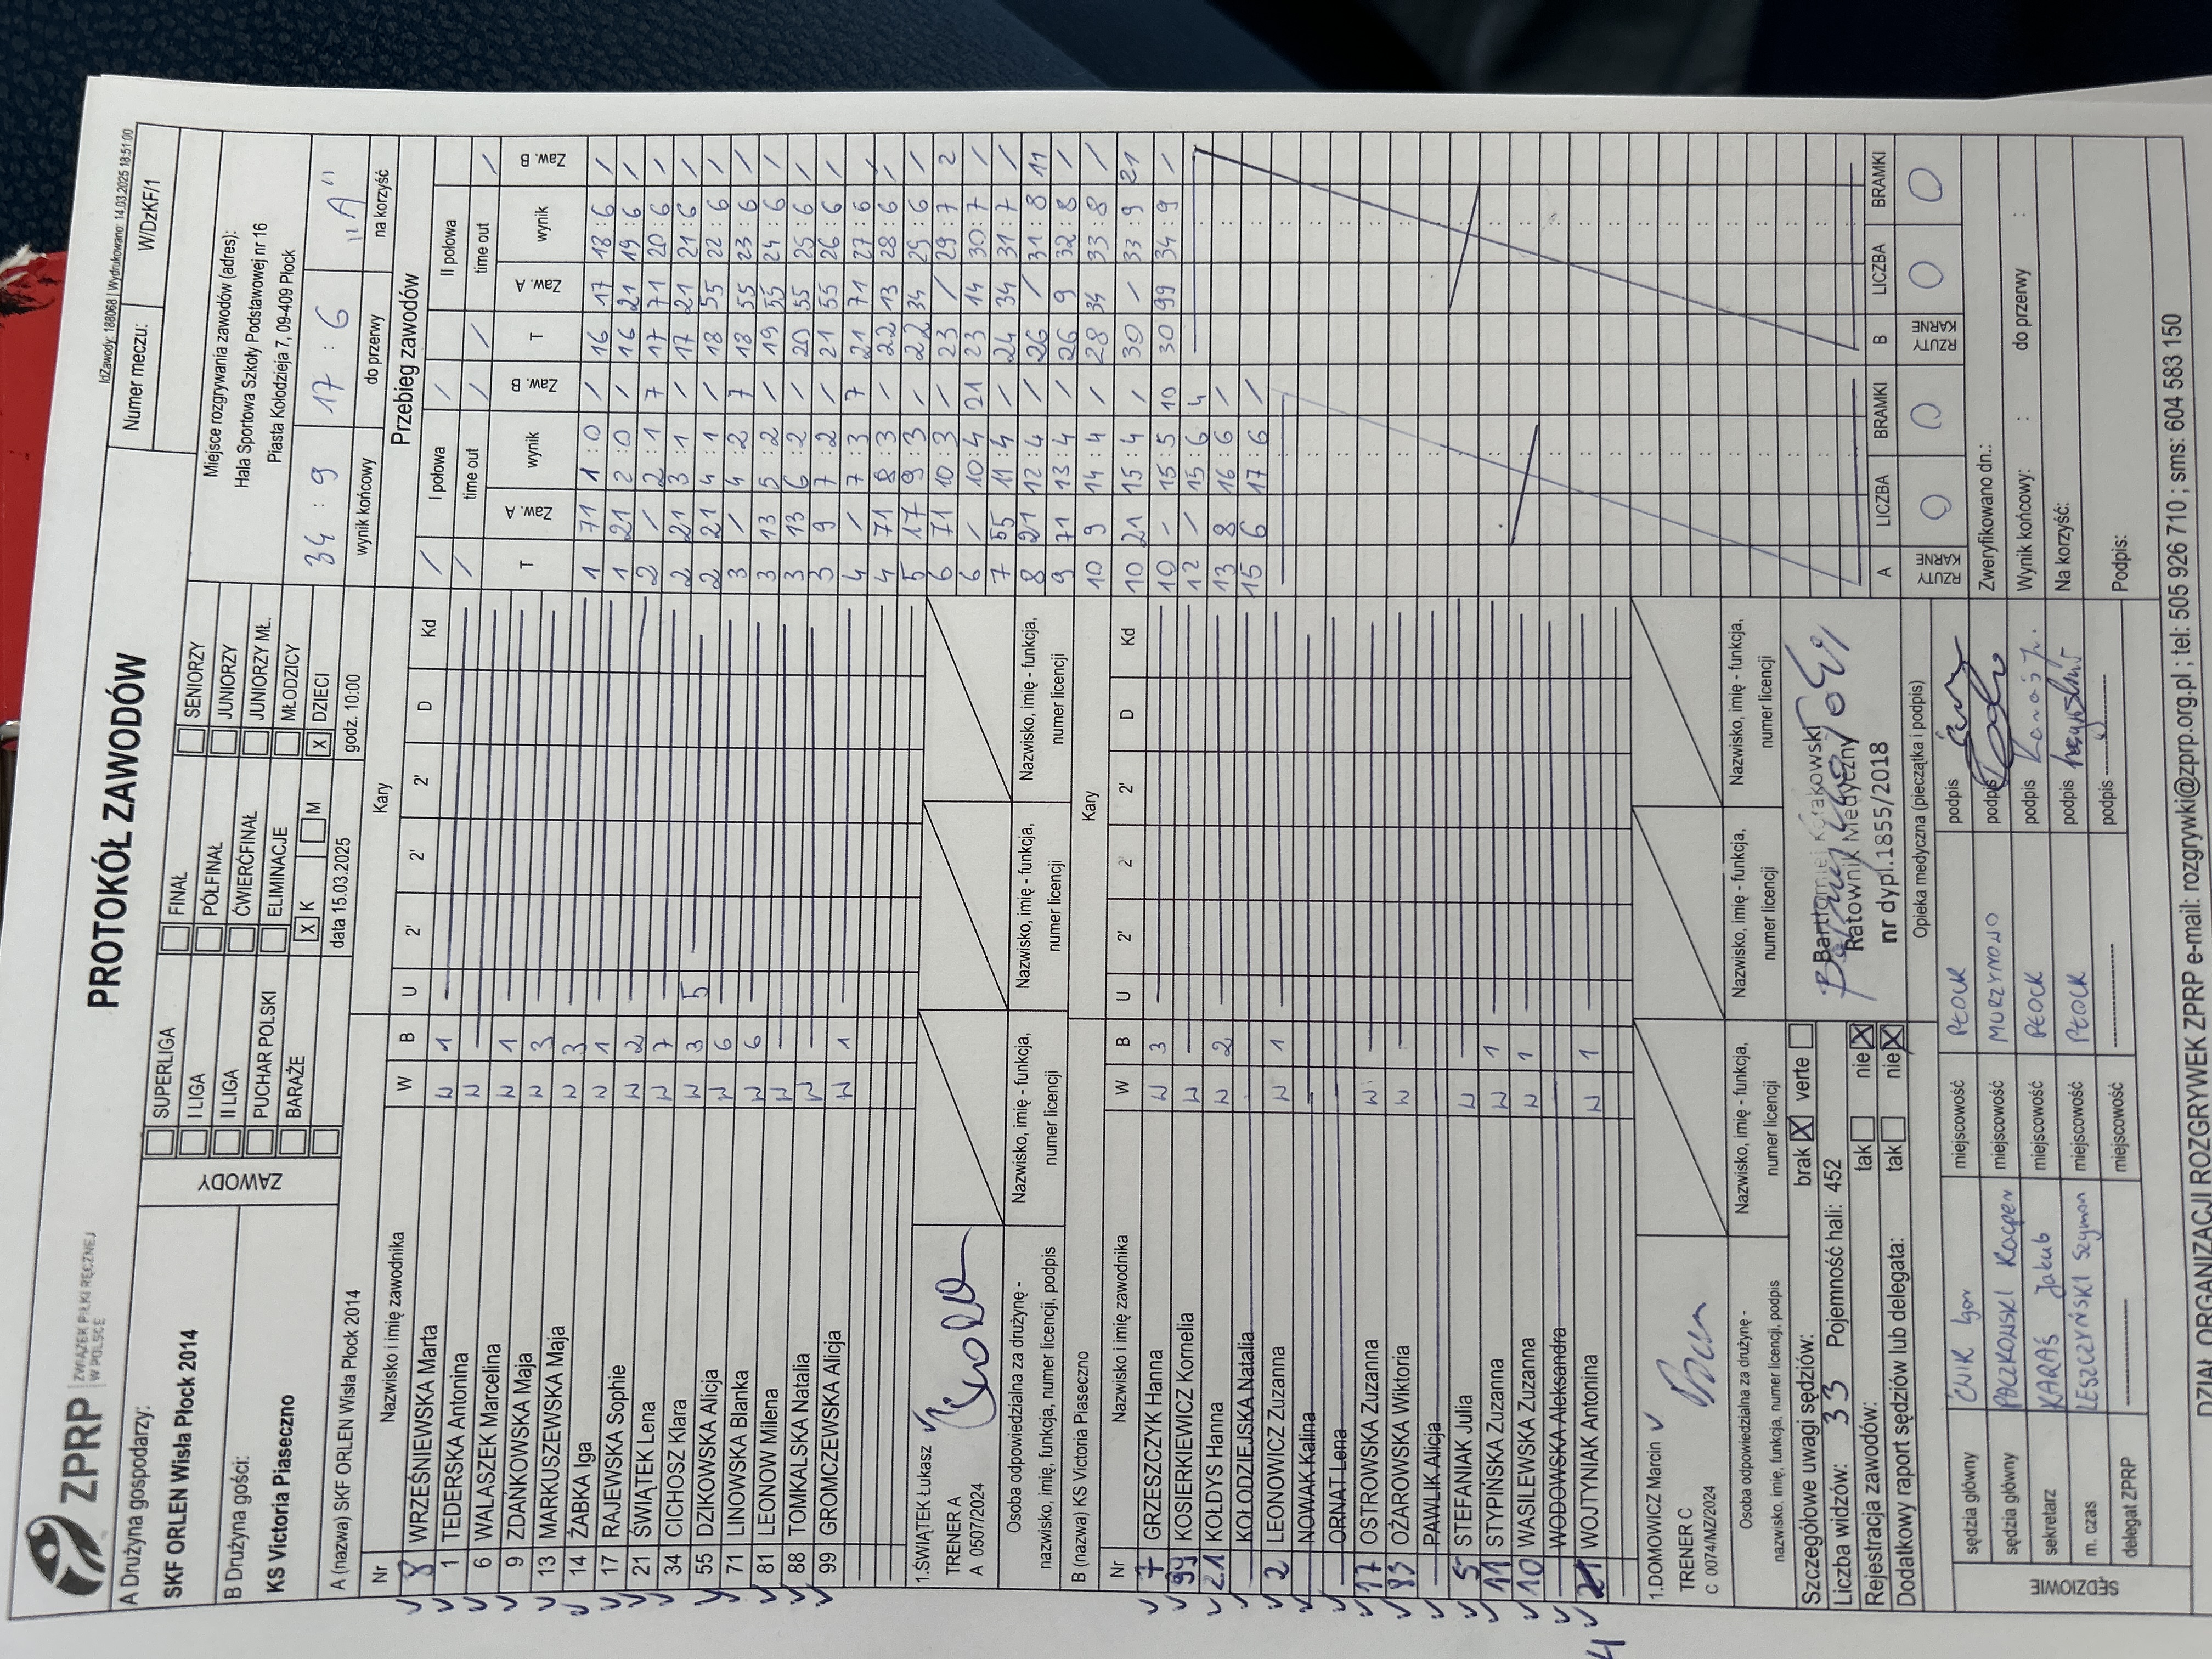 ZPRP
ZWIĄZEK PIŁKI RĘCZNEJ
W POLSCE
PROTOKÓŁ ZAWODÓW
IdZawody: 188068 | Wydrukowano: 14.03.2025 18:51:00
Numer meczu:
W/DzKF/1
A Drużyna gospodarzy:
SKF ORLEN Wisła Płock 2014
B Drużyna gości:
KS Victoria Piaseczno
ZAWODY
SUPERLIGA
I LIGA
II LIGA
PUCHAR POLSKI
BARAŻE
FINAŁ
PÓŁFINAŁ
ĆWIERĆFINAŁ
ELIMINACJE
X K M
SENIORZY
JUNIORZY
JUNIORZY MŁ.
MŁODZICY
X DZIECI
data 15.03.2025
godz. 10:00
Miejsce rozgrywania zawodów (adres):
Hala Sportowa Szkoły Podstawowej nr 16
Piasta Kołodzieja 7, 09-409 Płock
34 : 9
17 : 6
"A"
wynik końcowy
do przerwy
na korzyść
A (nazwa) SKF ORLEN Wisła Płock 2014
Kary
Nr Nazwisko i imię zawodnika W B U 2' 2' 2' D Kd
8 WRZEŚNIEWSKA Marta W 1
1 TEDERSKA Antonina W
6 WALASZEK Marcelina W 1
9 ZDANKOWSKA Maja W 3
13 MARKUSZEWSKA Maja W 3
14 ŻABKA Iga W 1
17 RAJEWSKA Sophie W 2
21 ŚWIĄTEK Lena W 7
34 CICHOSZ Klara W 3 5
55 DZIKOWSKA Alicja W 6
71 LINOWSKA Blanka W 6
81 LEONOW Milena W
88 TOMKALSKA Natalia W
99 GROMCZEWSKA Alicja W 1
1.ŚWIĄTEK Łukasz
TRENER A
A 0507/2024
Osoba odpowiedzialna za drużynę -
nazwisko, imię, funkcja, numer licencji, podpis
Nazwisko, imię - funkcja,
numer licencji
Nazwisko, imię - funkcja,
numer licencji
Nazwisko, imię - funkcja,
numer licencji
B (nazwa) KS Victoria Piaseczno
Kary
Nr Nazwisko i imię zawodnika W B U 2' 2' 2' D Kd
7 GRZESZCZYK Hanna W 3
99 KOSIERKIEWICZ Kornelia W
21 KOŁDYS Hanna W 2
KOŁODZIEJSKA Natalia
2 LEONOWICZ Zuzanna W 1
NOWAK Kalina
ORNAT Lena
17 OSTROWSKA Zuzanna W
83 OŻAROWSKA Wiktoria W
PAWLIK Alicja
5 STEFANIAK Julia W
11 STYPIŃSKA Zuzanna W 1
10 WASILEWSKA Zuzanna W 1
WODOWSKA Aleksandra
4 WOJTYNIAK Antonina W 1
1.DOMOWICZ Marcin
TRENER C
C 0074/MZ/2024
Osoba odpowiedzialna za drużynę -
nazwisko, imię, funkcja, numer licencji, podpis
Nazwisko, imię - funkcja,
numer licencji
Nazwisko, imię - funkcja,
numer licencji
Nazwisko, imię - funkcja,
numer licencji
Przebieg zawodów
I połowa
II połowa
time out
time out
T Zaw. A wynik Zaw. B
1 71 1 : 0 /
1 21 2 : 0 /
2 / 2 : 1 7
2 21 3 : 1 /
2 21 4 : 1 /
3 / 4 : 2 7
3 13 5 : 2 /
3 13 6 : 2 /
3 9 7 : 2 /
4 / 7 : 3 7
4 71 8 : 3 /
5 17 9 : 3 /
6 71 10 : 3 /
6 / 10 : 4 21
7 55 11 : 4 /
8 21 12 : 4 /
9 71 13 : 4 /
10 9 14 : 4 /
10 21 15 : 4 /
10 / 15 : 5 10
12 / 15 : 6 4
13 8 16 : 6 /
15 6 17 : 6 /
T Zaw. A wynik Zaw. B
16 17 18 : 6 /
16 21 19 : 6 /
17 71 20 : 6 /
17 21 21 : 6 /
18 55 22 : 6 /
18 55 23 : 6 /
19 55 24 : 6 /
20 55 25 : 6 /
21 55 26 : 6 /
21 71 27 : 6 /
22 13 28 : 6 /
22 34 29 : 6 /
23 / 29 : 7 2
23 14 30 : 7 /
24 34 31 : 7 /
26 / 31 : 8 11
26 9 32 : 8 /
28 34 33 : 8 /
30 / 33 : 9 21
30 99 34 : 9 /
A LICZBA BRAMKI B LICZBA BRAMKI
RZUTY KARNE 0 0 RZUTY KARNE 0 0
Szczegółowe uwagi sędziów: brak X verte
Liczba widzów: 33 Pojemność hali: 452
Rejestracja zawodów: tak nie X
Dodatkowy raport sędziów lub delegata: tak nie X
Bartłomiej Krakowski
Ratownik Medyczny
nr dypl.1855/2018
Opieka medyczna (pieczątka i podpis)
SĘDZIOWIE
sędzia główny ĆWIK Igor miejscowość PŁOCK podpis
sędzia główny PACZKOWSKI Kacper miejscowość MURZYNOWO podpis
sekretarz KARAŚ Jakub miejscowość PŁOCK podpis
m. czas LESZCZYŃSKI Szymon miejscowość PŁOCK podpis
delegat ZPRP miejscowość podpis
Zweryfikowano dn.:
Wynik końcowy: : do przerwy :
Na korzyść:
Podpis:
DZIAŁ ORGANIZACJI ROZGRYWEK ZPRP e-mail: rozgrywki@zprp.org.pl ; tel: 505 926 710 ; sms: 604 583 150